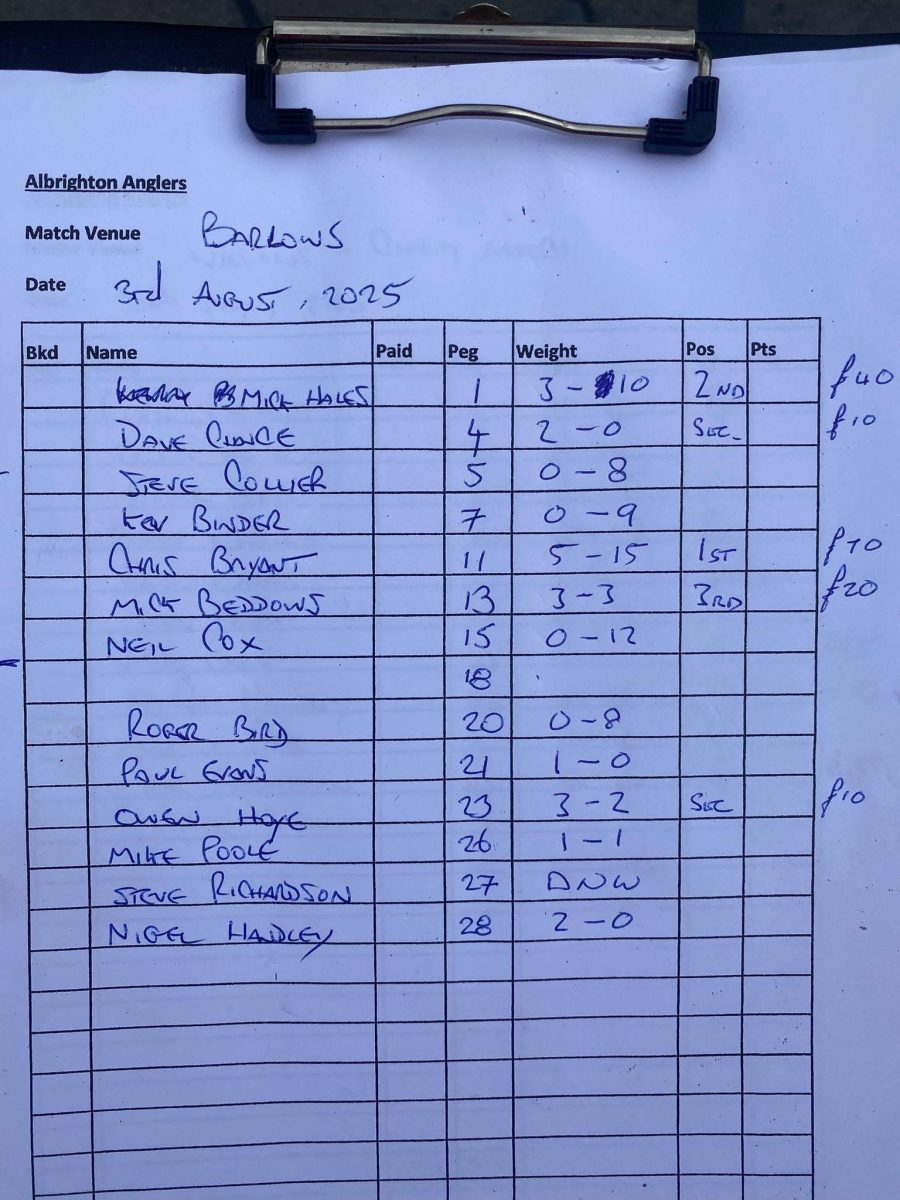 Albrighton Anglers
Match Venue BARLOWS
Date 3rd AUGUST, 2025
Bkd Name Paid Peg Weight Pos Pts
MICK HALES 1 3 - 10 2ND £40
DAVE CHANCE 4 2 - 0 SEC. £10
STEVE COLLIER 5 0 - 8
KEV BINDER 7 0 - 9
CHRIS BRYANT 11 5 - 15 1ST £70
MICK BEDDOWS 13 3 - 3 3RD £20
NEIL COX 15 0 - 12
18
ROGER BIRD 20 0 - 8
PAUL EVANS 21 1 - 0
OWEN HOYE 23 3 - 2 SEC £10
MIKE POOLE 26 1 - 1
STEVE RICHARDSON 27 DNW
NIGEL HANDLEY 28 2 - 0